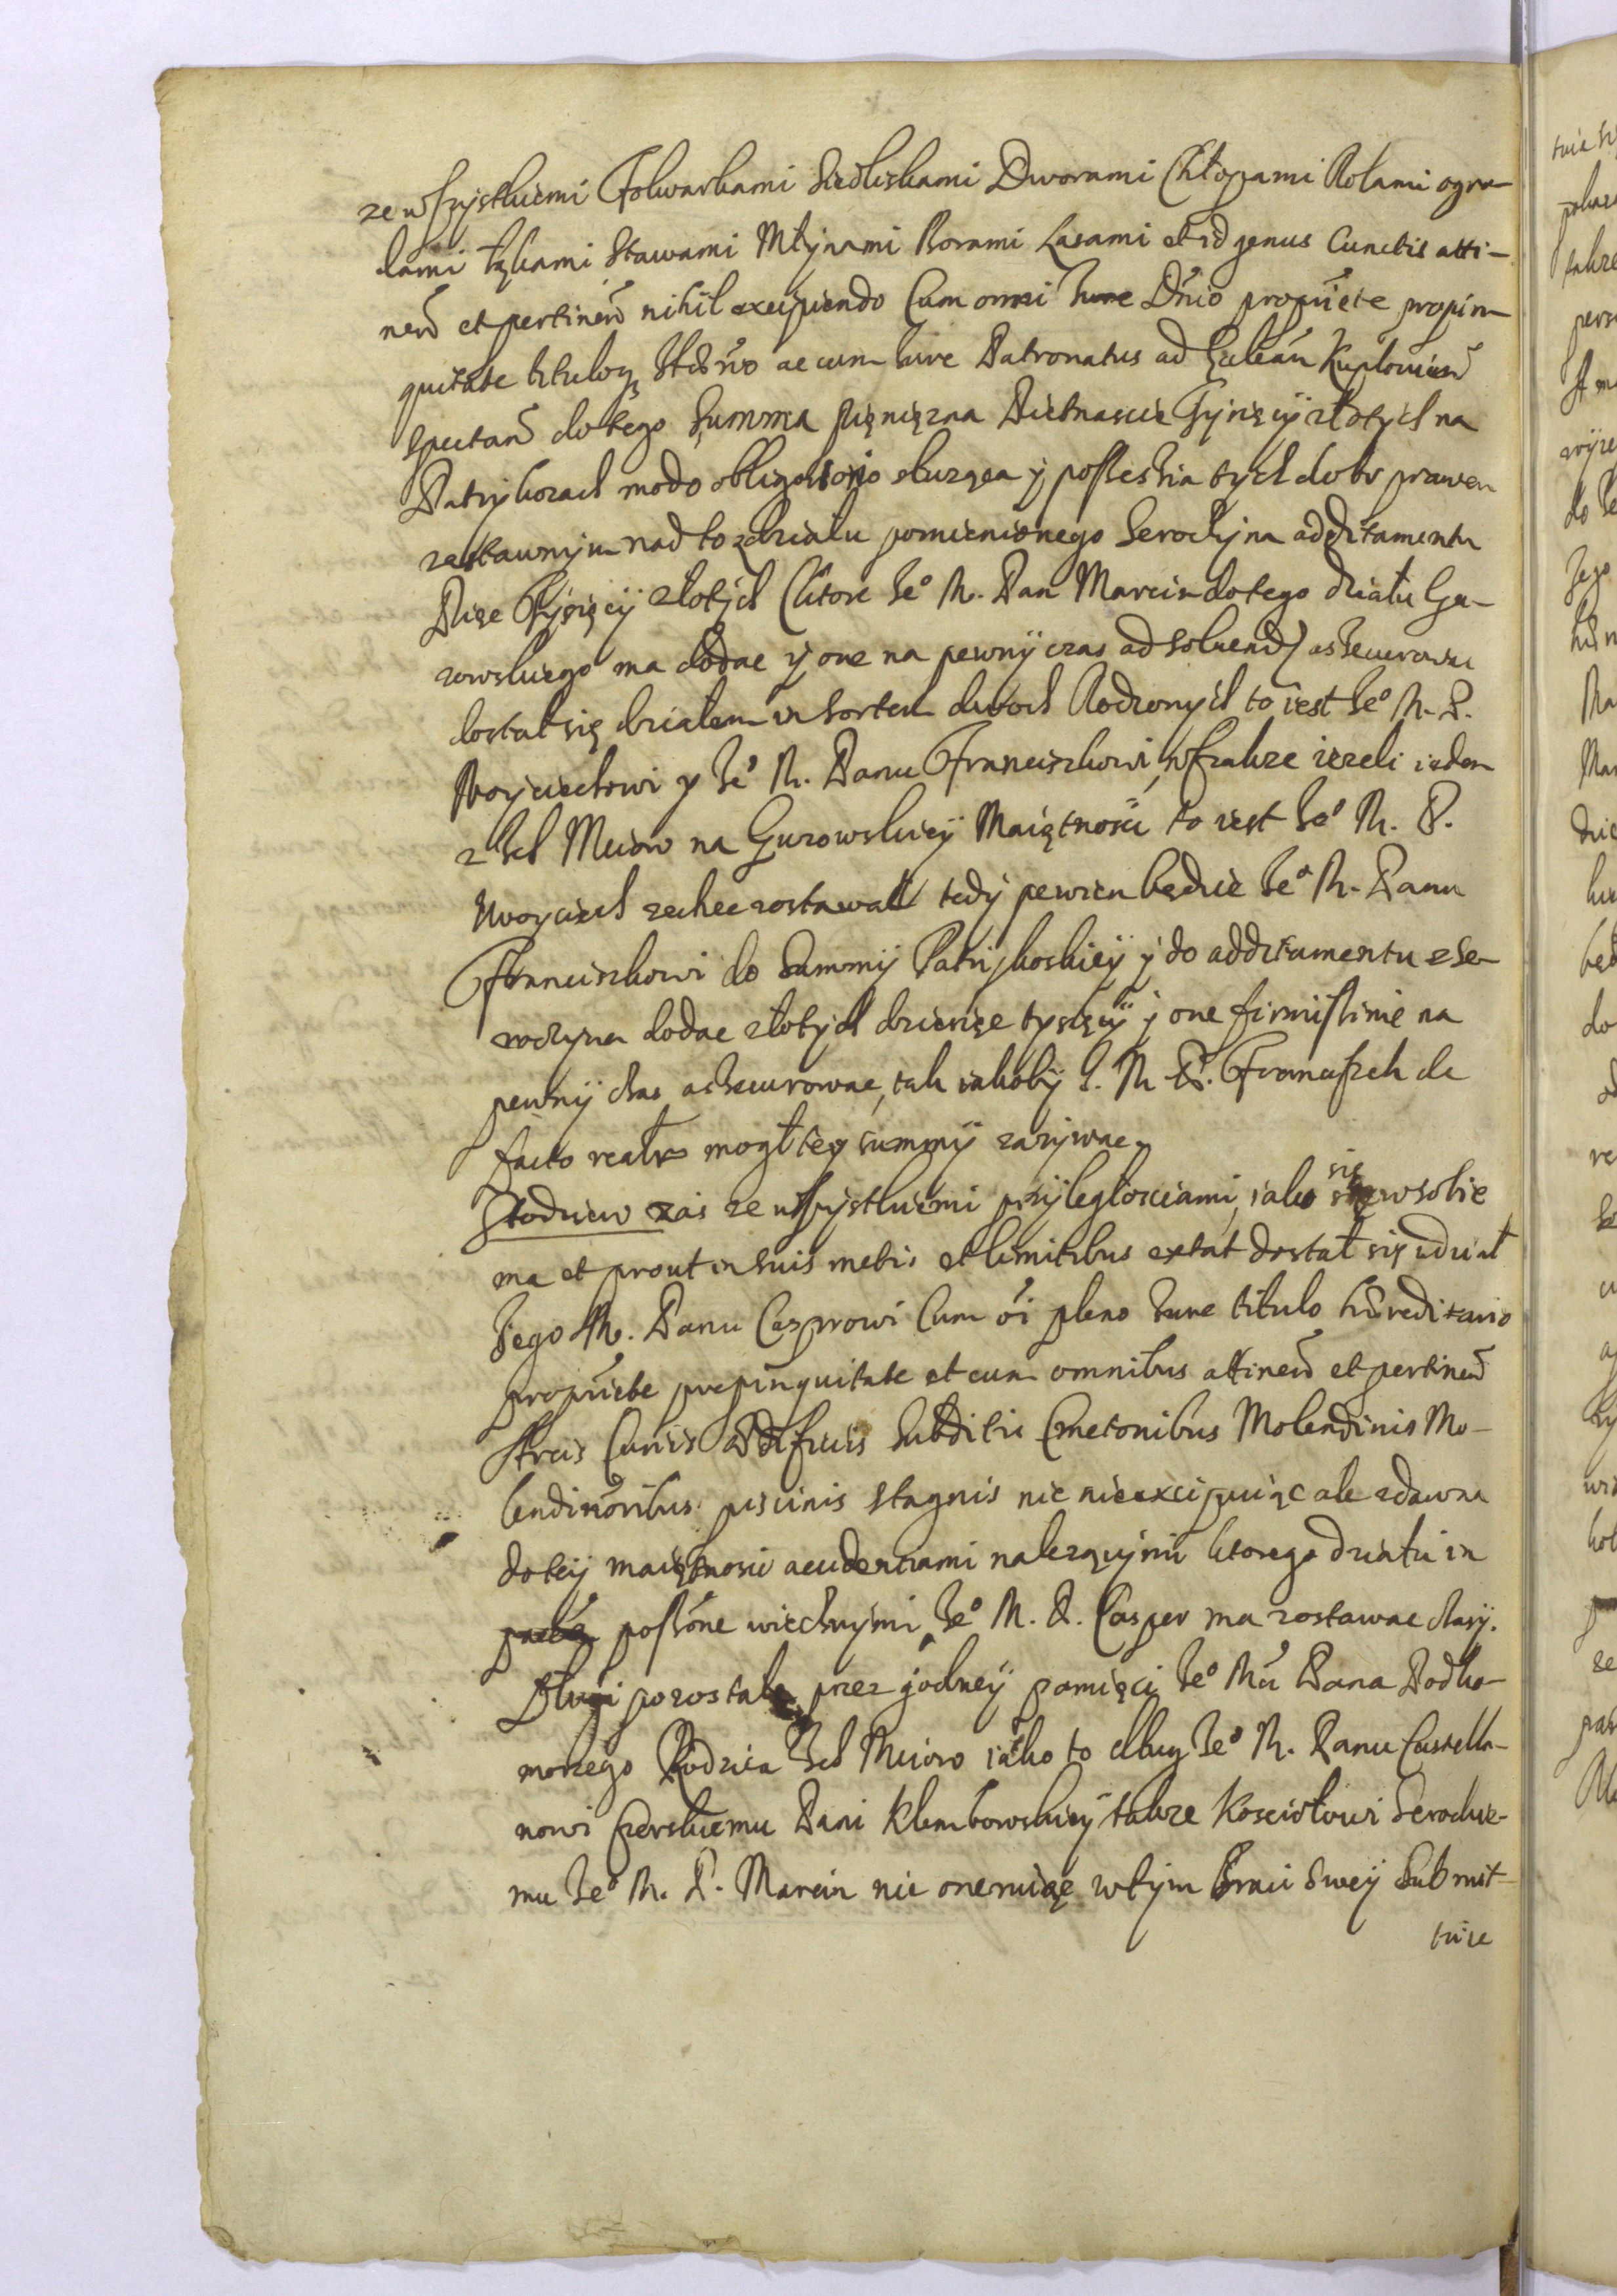 ze wszystkiemi Folwarkami Siedliskami Dworami Chłopami Rolami ogro-
dami łąkami Stawami Młynami Borami Lasami et id genus Cunctis atti-
neñ et pertineñ nihil excipiendo Cum omni Iure Dñio proprićte propin-
quitate tituloq hćdrio ac cum Iure Patronatus ad Ecleãm
spectañ do tego Summa pięnięzna Pietnascie Tysięcÿ złotych na
Patrykozach modo obligatorio słuząca ÿ possessia tych dobr prawem
zastawnym nad to zdziału pomienionego Seroczyna additamentu
Pięc Tysięcÿ złotych Ktore Je⁰ M. Pan Marcin do tego działu Gu-
zowskiego ma dodac ÿ one na pewnÿ czas ad solvend assecurowac
dostał się działem in sortem dwoch Rodzonych to iest Je⁰ M. P.
Woyciechowi y Je⁰ M. Panu Franciszkowi, wszakze iezeli ieden
z Ich Mciow na Guzowskieÿ Maiętnosci to iest Je⁰ M. P.
Woyciech zechce zostawać tedÿ pewien będzie Je⁰ M. Panu
Franciszkowi do Summÿ Patrykoskieÿ ÿ do additamentu z Se-
roczyna dodac złotych dziesięc tysięcÿ ÿ one firmissime na
pewnÿ czas assecurowac, tak iakobÿ I. M P. Franciszek de
facto realr mogł teÿ summÿ zazywac
Stodziew zas ze wszystkiemi przÿległosciami, iako się w sobie
ma et prout in suis metis et limitibus extat dostał się w dział
Jego M. Panu Casprowi Cum oi pleno Iure titulo hæreditario
proprićte propinquitate et cum omnibus attineñ et pertineñ
Areis Curiis Ædificiis Subditis Cmetonibus Molendinis Mo-
lendinoribus piscinis stagnis nic nie excipuiąc ale zdawna
do teÿ maiętnosci accidenciami nalezącymi ktorego działu in
possone wiecznymi Je⁰ M. P. Casper ma zostawac czasÿ.
Długi pozostałe przez godneÿ pamięci Je⁰ Mci Pana Podko-
morzego Rodzica Ich Mciow iako to dług Je⁰ M. Panu Castella-
nowi Czerskiemu Pani Klembowskieÿ takze Kosciołowi Serockie-
mu Je⁰ M. P. Marcin nic oneruiąc wtym Braci Sweÿ Submit-
tuie